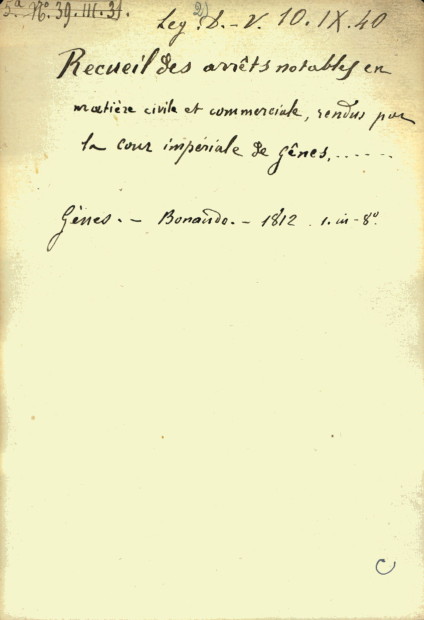 5ª Nº 39. III. 31.
Leg. D. - V. 10. IX. 40
Recueil des arrêts notables en
matière civile et commerciale, rendus par
la Cour impériale de Gênes, ......
Gênes. - Bonaudo. - 1812. 1. in-8º.